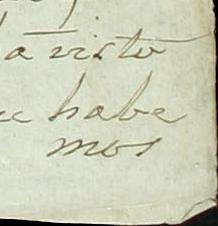 a visto
habe
mos